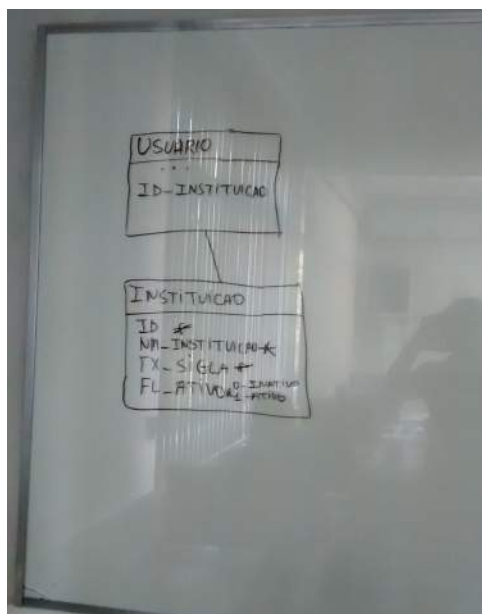 USUARIO
...
ID_INSTITUICAO
INSTITUICAO
ID *
NM_INSTITUICAO *
TX_SIGLA *
FL_ATIVO 0-INATIVO
1-ATIVO